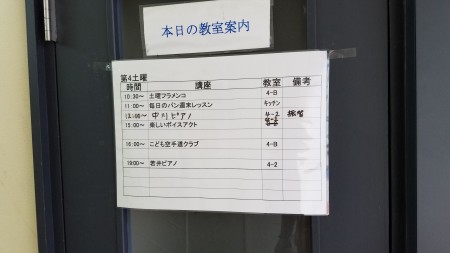 本日の教室案内
第4土曜
時間 講座 教室 備考
10:30～ 土曜フラメンコ 4-B
11:00～ 毎日のパン週末レッスン キッチン
12:00～ 中川ピアノ 4-2 振替
15:00～ 楽しいボイスアクト
16:00～ こども空手道クラブ 4-B
19:00～ 若井ピアノ 4-2